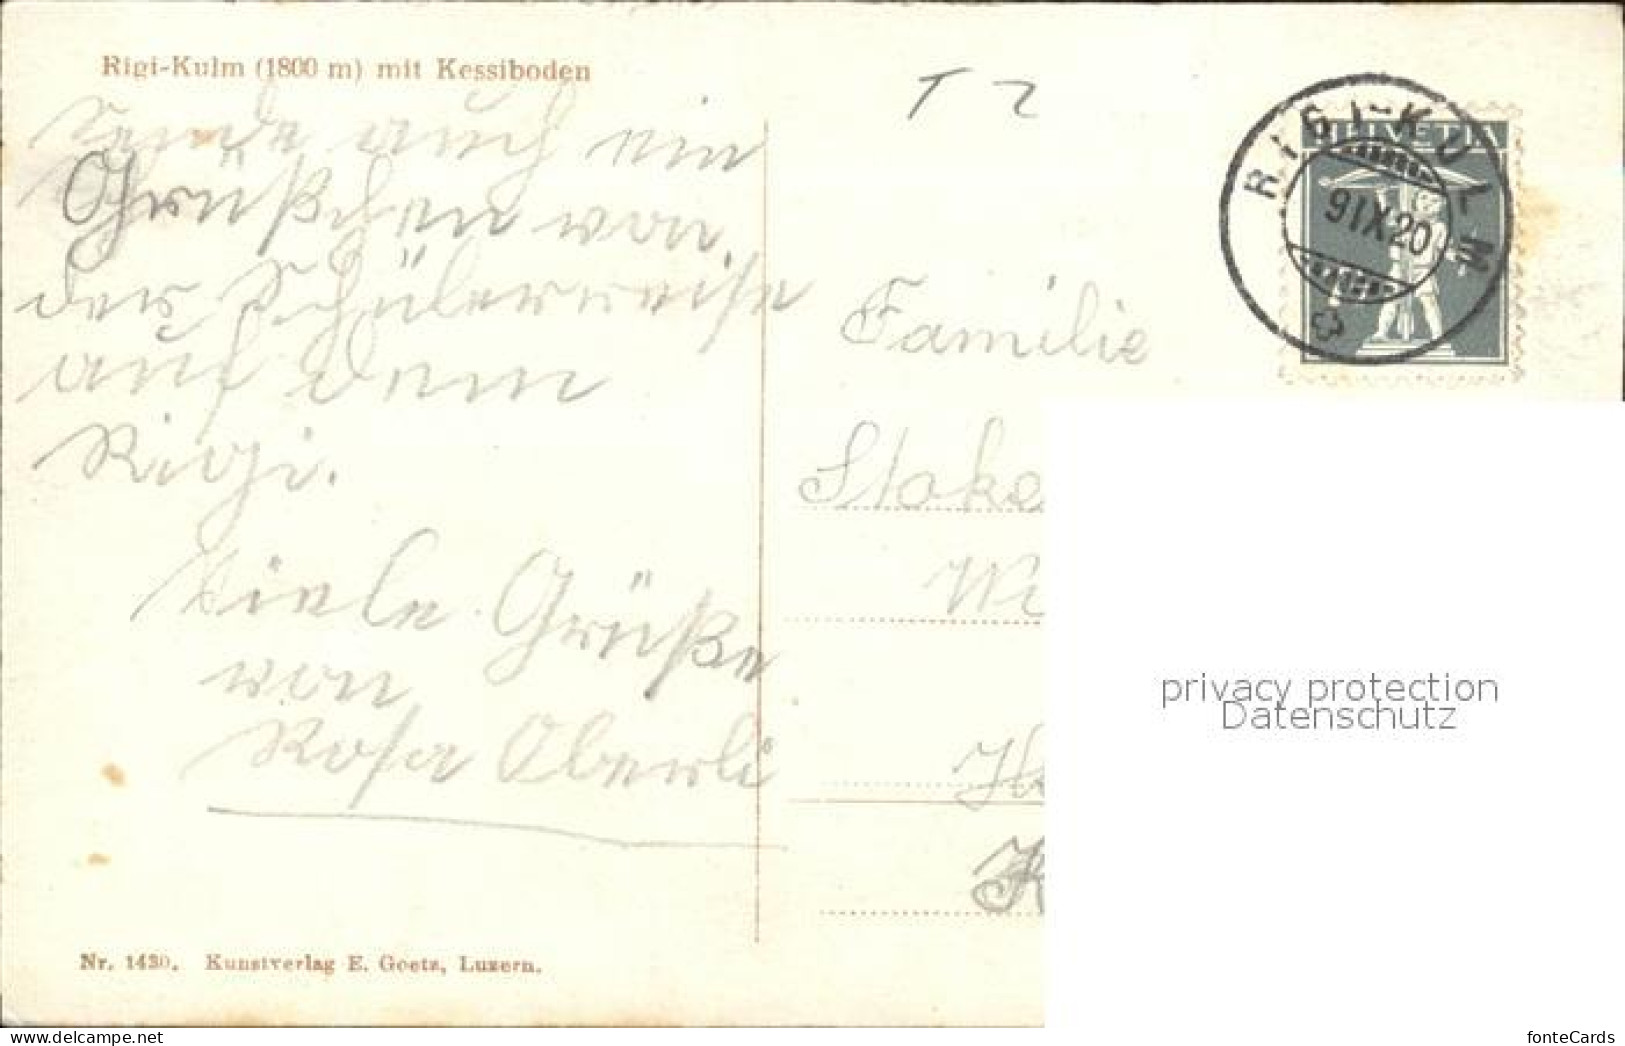 Rigi-Kulm (1800 m) mit Kessiboden
Sende auch ein
Grüßchen von
der Schülerreise
auf dem
Rigi.
Viele Grüße
von
Rosa Oberli
Nr. 1430. Kunstverlag E. Goetz, Luzern.
T 2
HELVETIA
RIGI-KULM
9 IX 20
Familie
privacy protection
Datenschutz
www.delcampe.net
fonteCards